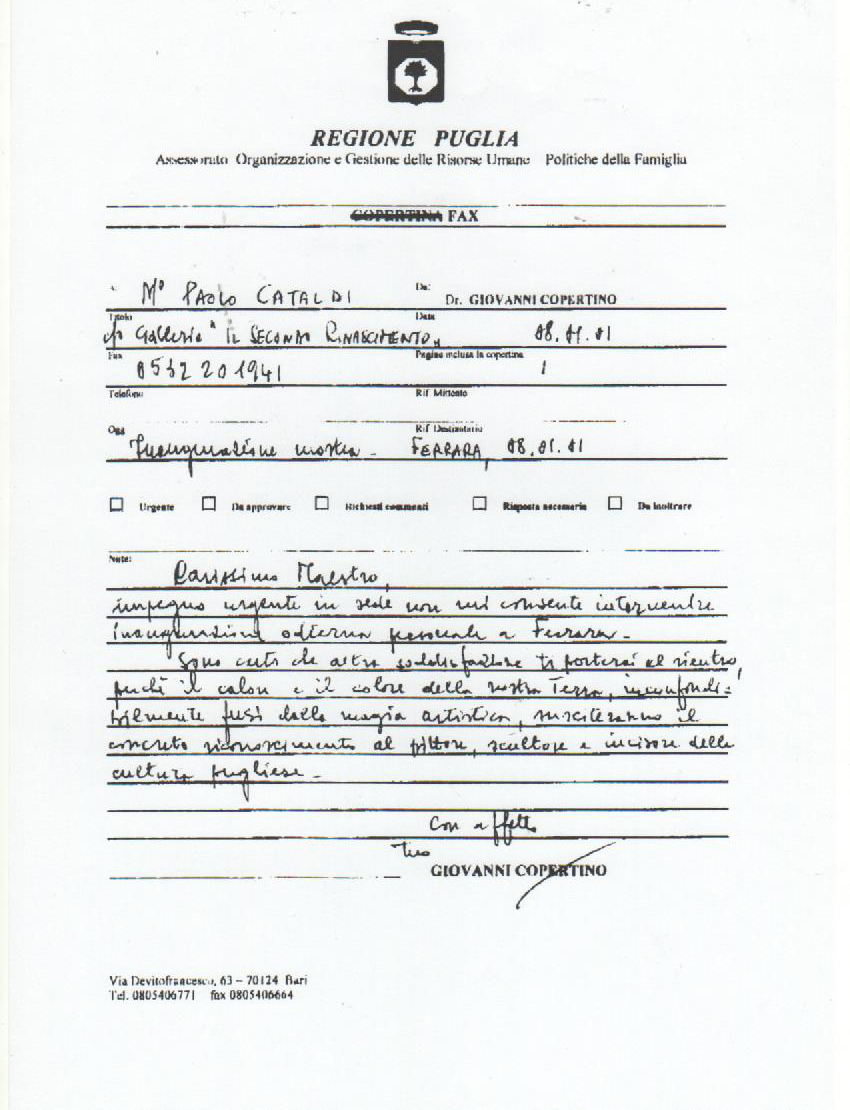 REGIONE PUGLIA
Assessorato Organizzazione e Gestione delle Risorse Umane Politiche della Famiglia
COPERTINA FAX
M° PAOLO CATALDI
Da:
Dr. GIOVANNI COPERTINO
Titolo
Data
c/o Galleria "IL SECONDO RINASCIMENTO"
08.01.01
Fax
Pagine inclusa la copertina
0532 201941
1
Telefono
Rif. Mittente
Ogg
Rif. Destinatario
Inaugurazione mostra - FERRARA, 08.01.01
Urgente Da approvare Richiesti commenti Risposta necessaria Da inoltrare
Note:
Carissimo Maestro,
impegno urgente in sede non mi consente intervenire
inaugurazione odierna personale a Ferrara.
Sono certo che altra soddisfazione ti porterai al rientro,
perché il calore e il colore della nostra Terra, inconfondi=
bilmente fusi dalla magia artistica, susciteranno il
concreto riconoscimento al pittore, scultore e incisore della
cultura pugliese.
Con affetto
Tuo
GIOVANNI COPERTINO
Via Devitofrancesco, 63 – 70124 Bari
Tel. 0805406771 fax 0805406664